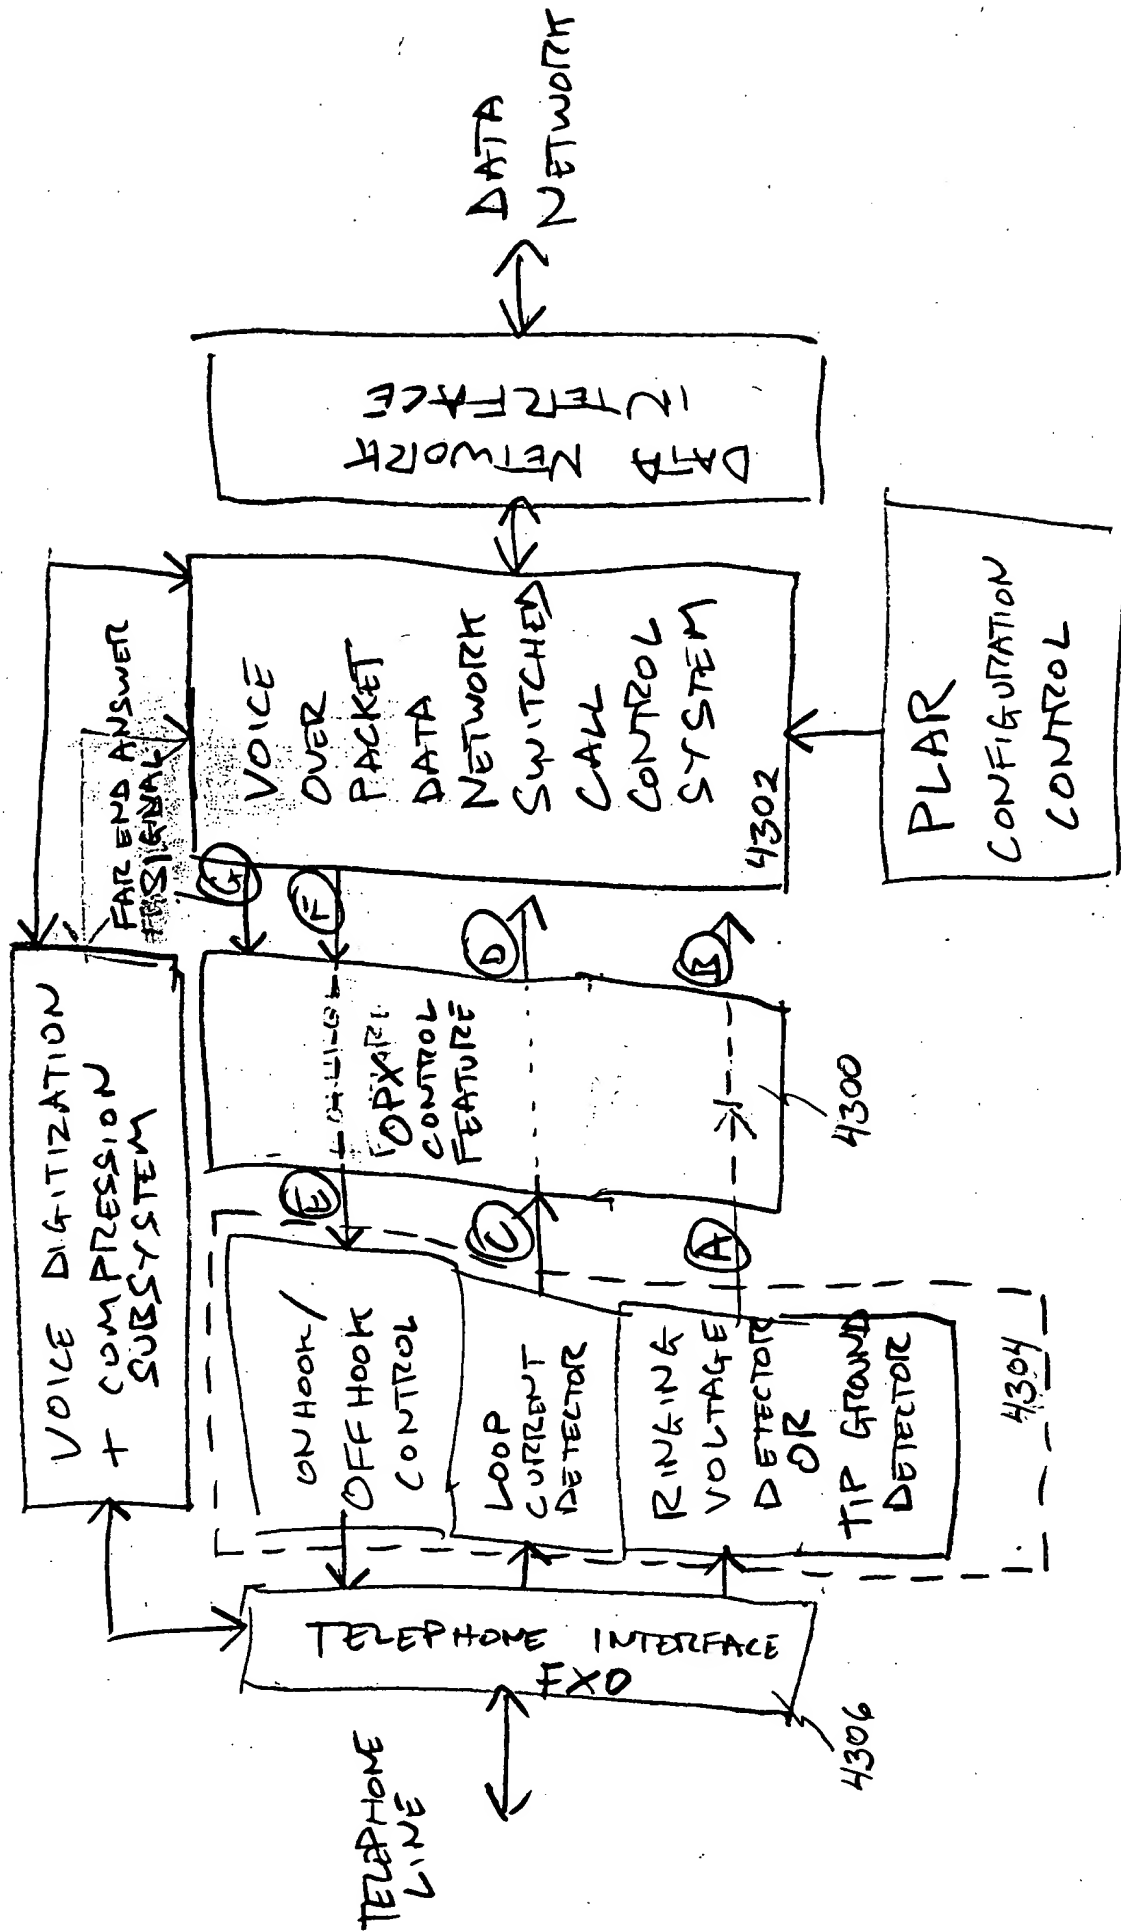 TELEPHONE
LINE
TELEPHONE INTERFACE
FXO
4306
VOICE DIGITIZATION
+ COMPRESSION
SUBSYSTEM
ONHOOK/
OFFHOOK
CONTROL
LOOP
CURRENT
DETECTOR
RINGING
VOLTAGE
DETECTOR
OR
TIP GROUND
DETECTOR
4304
E
C
A
OPX
CONTROL
FEATURE
4300
G
F
D
B
FAR END ANSWER
SIGNAL
VOICE
OVER
PACKET
DATA
NETWORK
SWITCHED
CALL
CONTROL
SYSTEM
4302
PLAR
CONFIGURATION
CONTROL
DATA NETWORK
INTERFACE
DATA
NETWORK